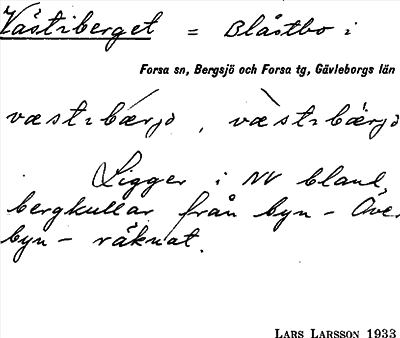 Västiberget = Blåstbo i
Forsa sn, Bergsjö och Forsa tg, Gävleborgs län
væstıbærjə, væstıbærjə
Ligger i NV bland
bergkullar från byn - Öve
byn - räknat.
LARS LARSSON 1933